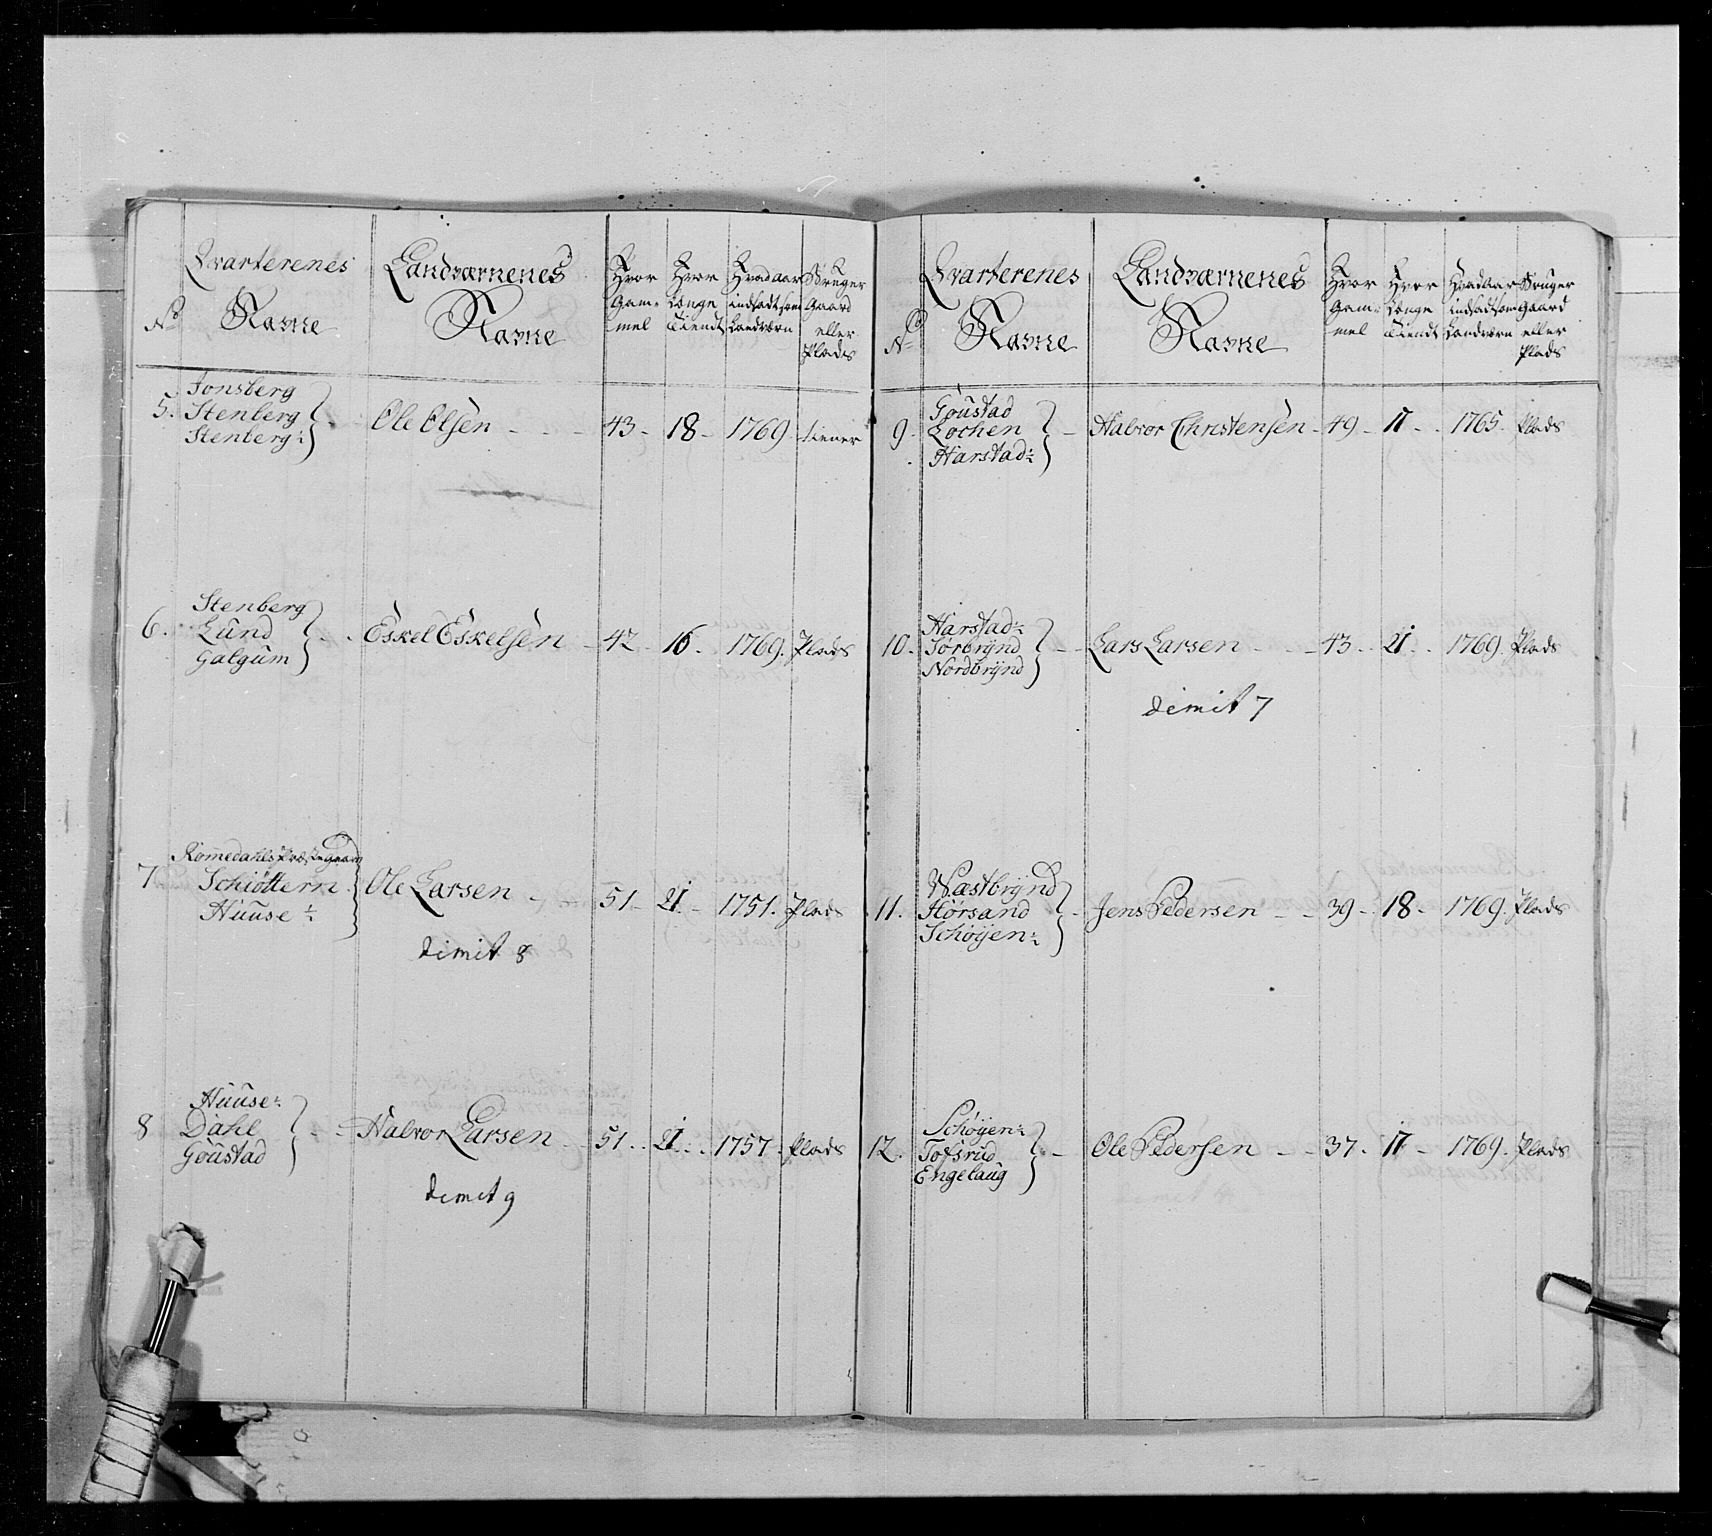 No
Qvarterenes Navne
Landværnenes Navne
Hvor Gam= mel
Hvor Længe Tiendt
Hvad Aar indsadt som Landværn
Bruger Gaard eller Plads
5. Jonsberg
Stenberg
Stenberg ½
Ole Olsen - 43 - 18 - 1769 tiener
6. Stenberg
Lund
Galgum
Eskel Eskelsen - 42 - 16 - 1769. Plads
7 Romedahls Præstegaard
Schiøttern
Huuse ½
Ole Larsen - 51 - 21 - 1751. Plads
dimit 8
8 Huuse ½
Dahl
Goustad
Halvor Larsen - 51 - 21 - 1757. Plads
dimit 9
No
Qvarterenes Navne
Landværnenes Navne
Hvor Gam= mel
Hvor Længe Tiendt
Hvad Aar indsadt som Landværn
Bruger Gaard eller Plads
9. Goustad
Løchen
Harstad ½
Halvor Christensen - 49 - 17 - 1765. Plads
10. Harstad ½
Sørbrÿnd
Nordbrÿnd
Lars Larsen - 43 - 21 - 1769. Plads
dimit 7
11. Wæstbrÿnd
Hørsand
Schøÿen ½
Jens Pedersen - 39 - 18 - 1769. Plads
12. Schøÿen ½
Tofsrud
Engelaug
Ole Pedersen - 37 - 17 - 1769. Plads